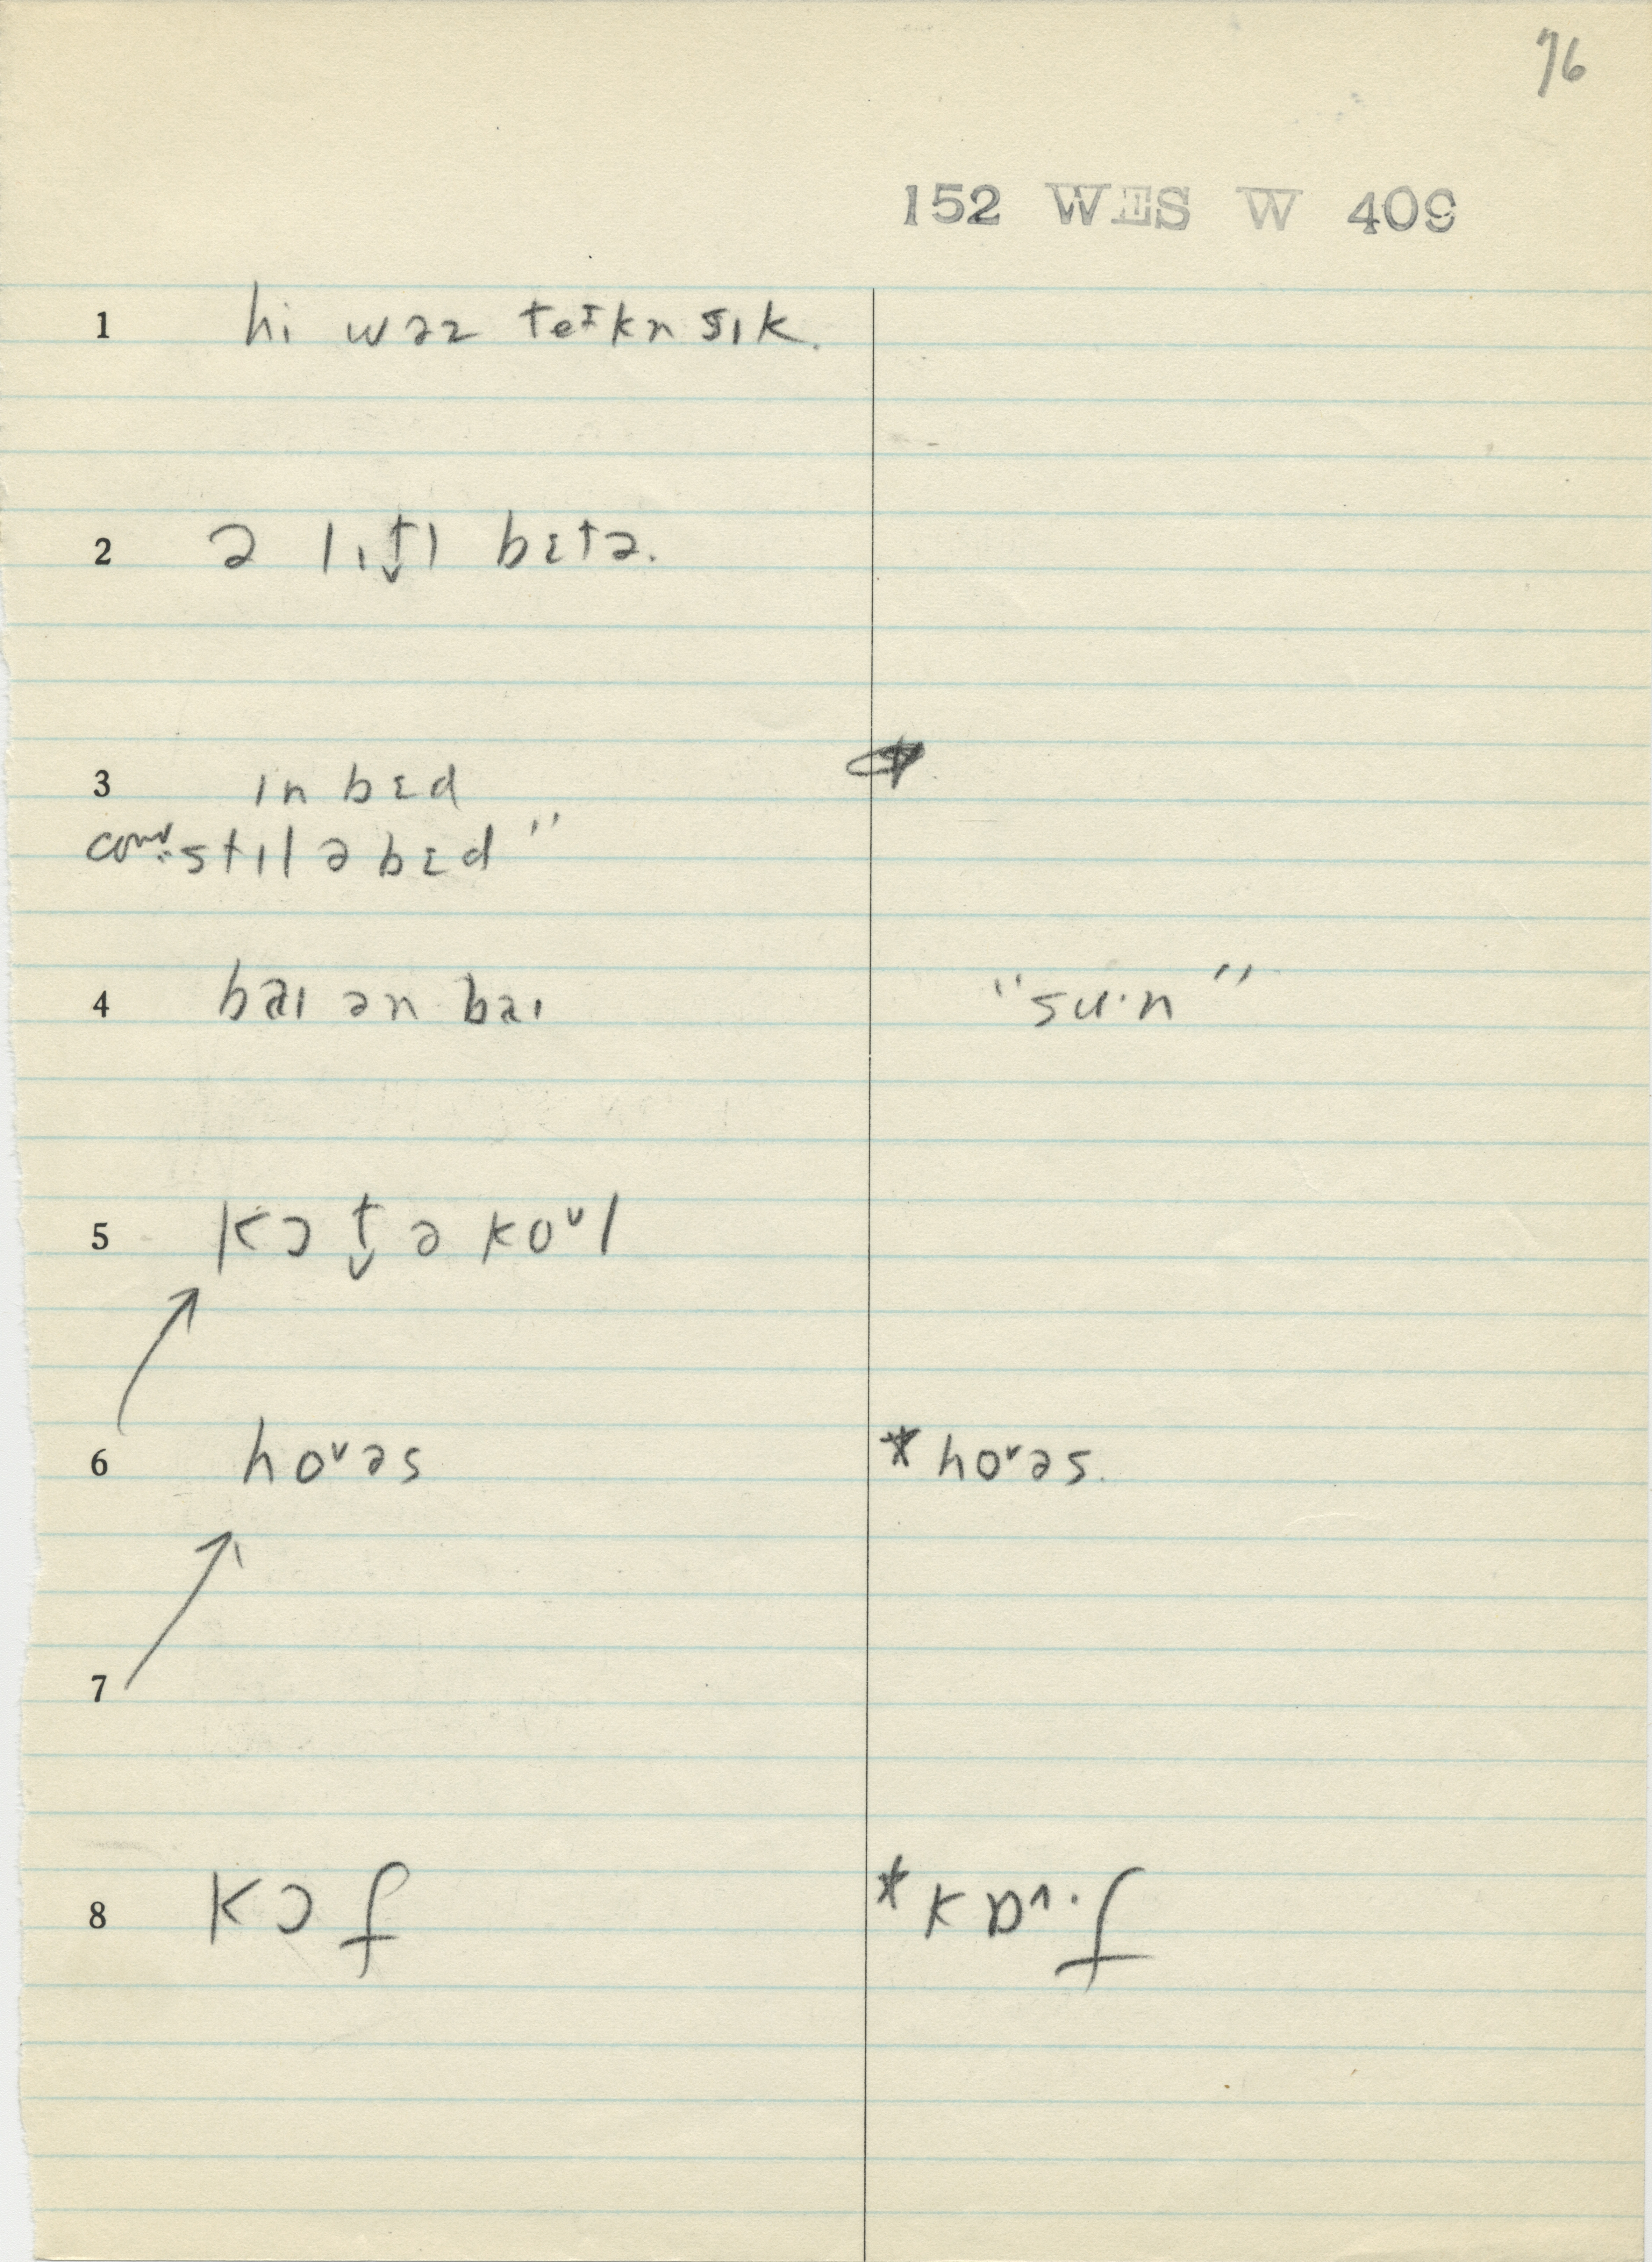 76
152 WES W 409
1 hi wəz teɪkn sɪk.
2 ə lɪt̬l bɛtə.
3 ɪn bɛd
conv. "stɪl ə bɛd"
4 baɪ ən baɪ "su·n"
5 kɔt̬ ə koᵛl
6 hoᵛəs * hoᵛəs.
7
8 kɔf * kɒ^·f